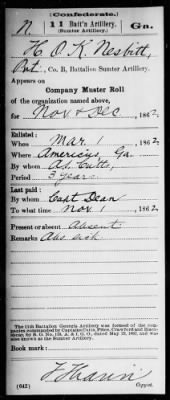 (Confederate.)
N 11 Batt'n Artillery, Ga.
(Sumter Artillery.)
H. O. K. Nesbitt,
Pvt, Co. B, Battalion Sumter Artillery.
Appears on
Company Muster Roll
of the organization named above,
for Nov & Dec, 1862.
Enlisted:
When Mar 1, 1862.
Where Americus, Ga.
By whom A. S. Cutts,
Period 3 years.
Last paid:
By whom Capt Dean
To what time Nov 1, 1862.
Present or absent Absent
Remarks Abs sick
The 11th Battalion Georgia Artillery was formed of the companies commanded by Captains Cutts, Price, Crawford and Blackshear,
was also known as the Sumter Artillery.
Book mark:
(642)
Copyist.